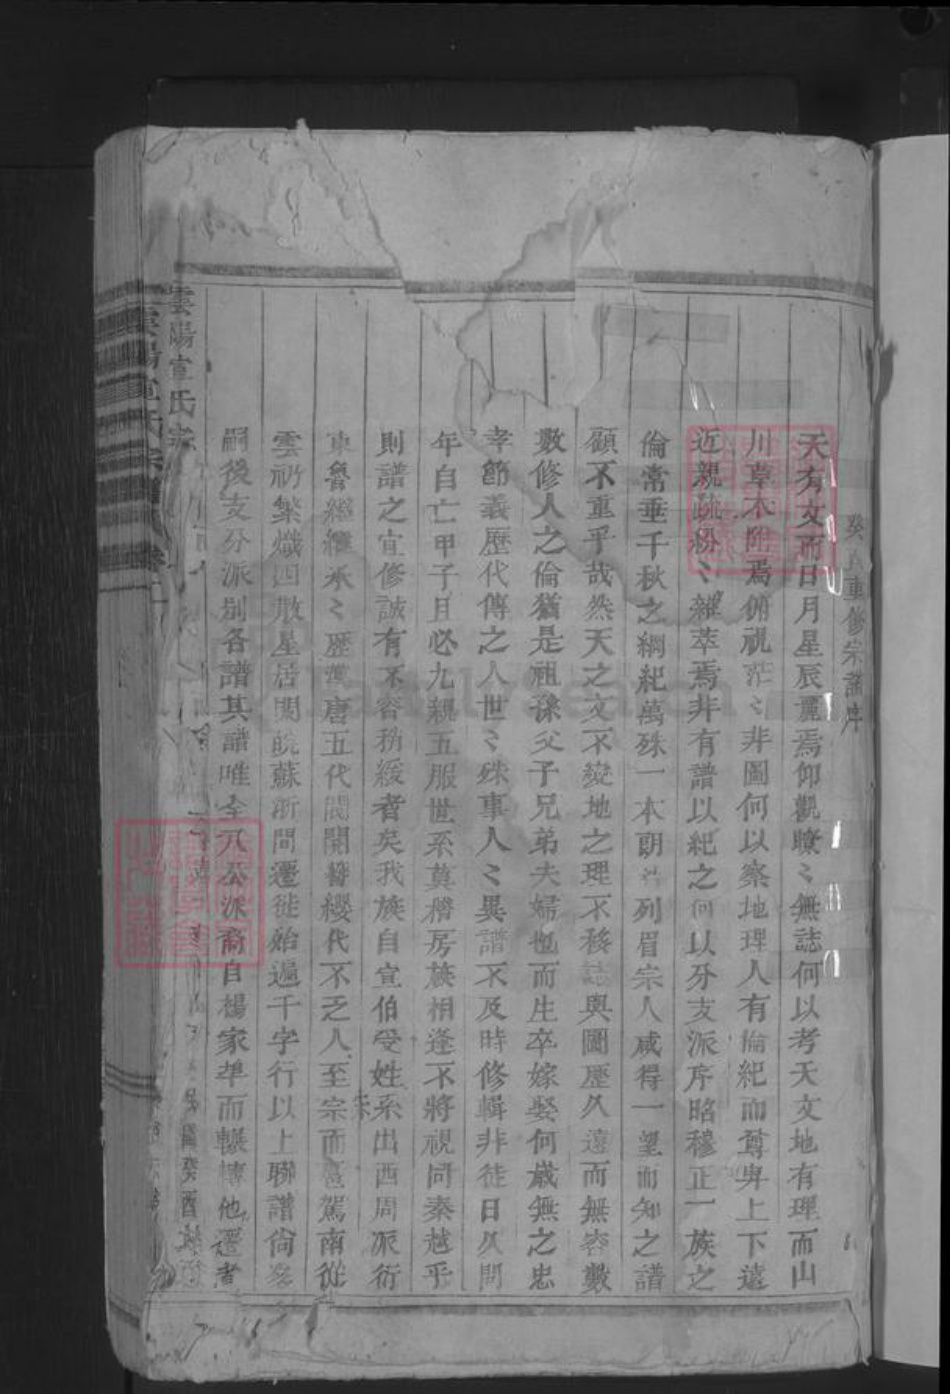 癸酉重修宗譜序
天有文而日月星辰麗焉仰觀瞭〻無誌何以考天文地有理而山
川草木附焉俯視茫〻非圖何以察地理人有倫紀而尊卑上下遠
近親疏紛〻雜萃焉非有譜以紀之何以分支派序昭穆正一族之
倫常垂千秋之綱紀萬殊一本朗列眉宗人咸得一望而知之譜
顧不重乎哉然天之文不變地之理不移誌與圖歷久遠而無容數
數修人之倫猶是祖孫父子兄弟夫婦也而生卒嫁娶何歲無之忠
孝節義歷代傳之人世〻殊事人〻異譜不及時修輯非徒日久間
年自亡甲子且必九親五服世系莫稽房族相逢不將視同秦越乎
則譜之宜修誠有不容稍緩者矣我族自宣伯受姓系出西周派衍
東魯繼繼承〻歷漢唐五代閥閱簪纓代不乏人至宗而蹕駕南從
雲礽繁熾四散星居閩皖蘇浙間遷徙始遍千字行以上聯譜尚
嗣後支分派別各譜其譜唯全八公派裔自楊家坓而輾轉他遷者
癸酉
雲陽宣氏宗
雲陽宣氏宗譜 卷一